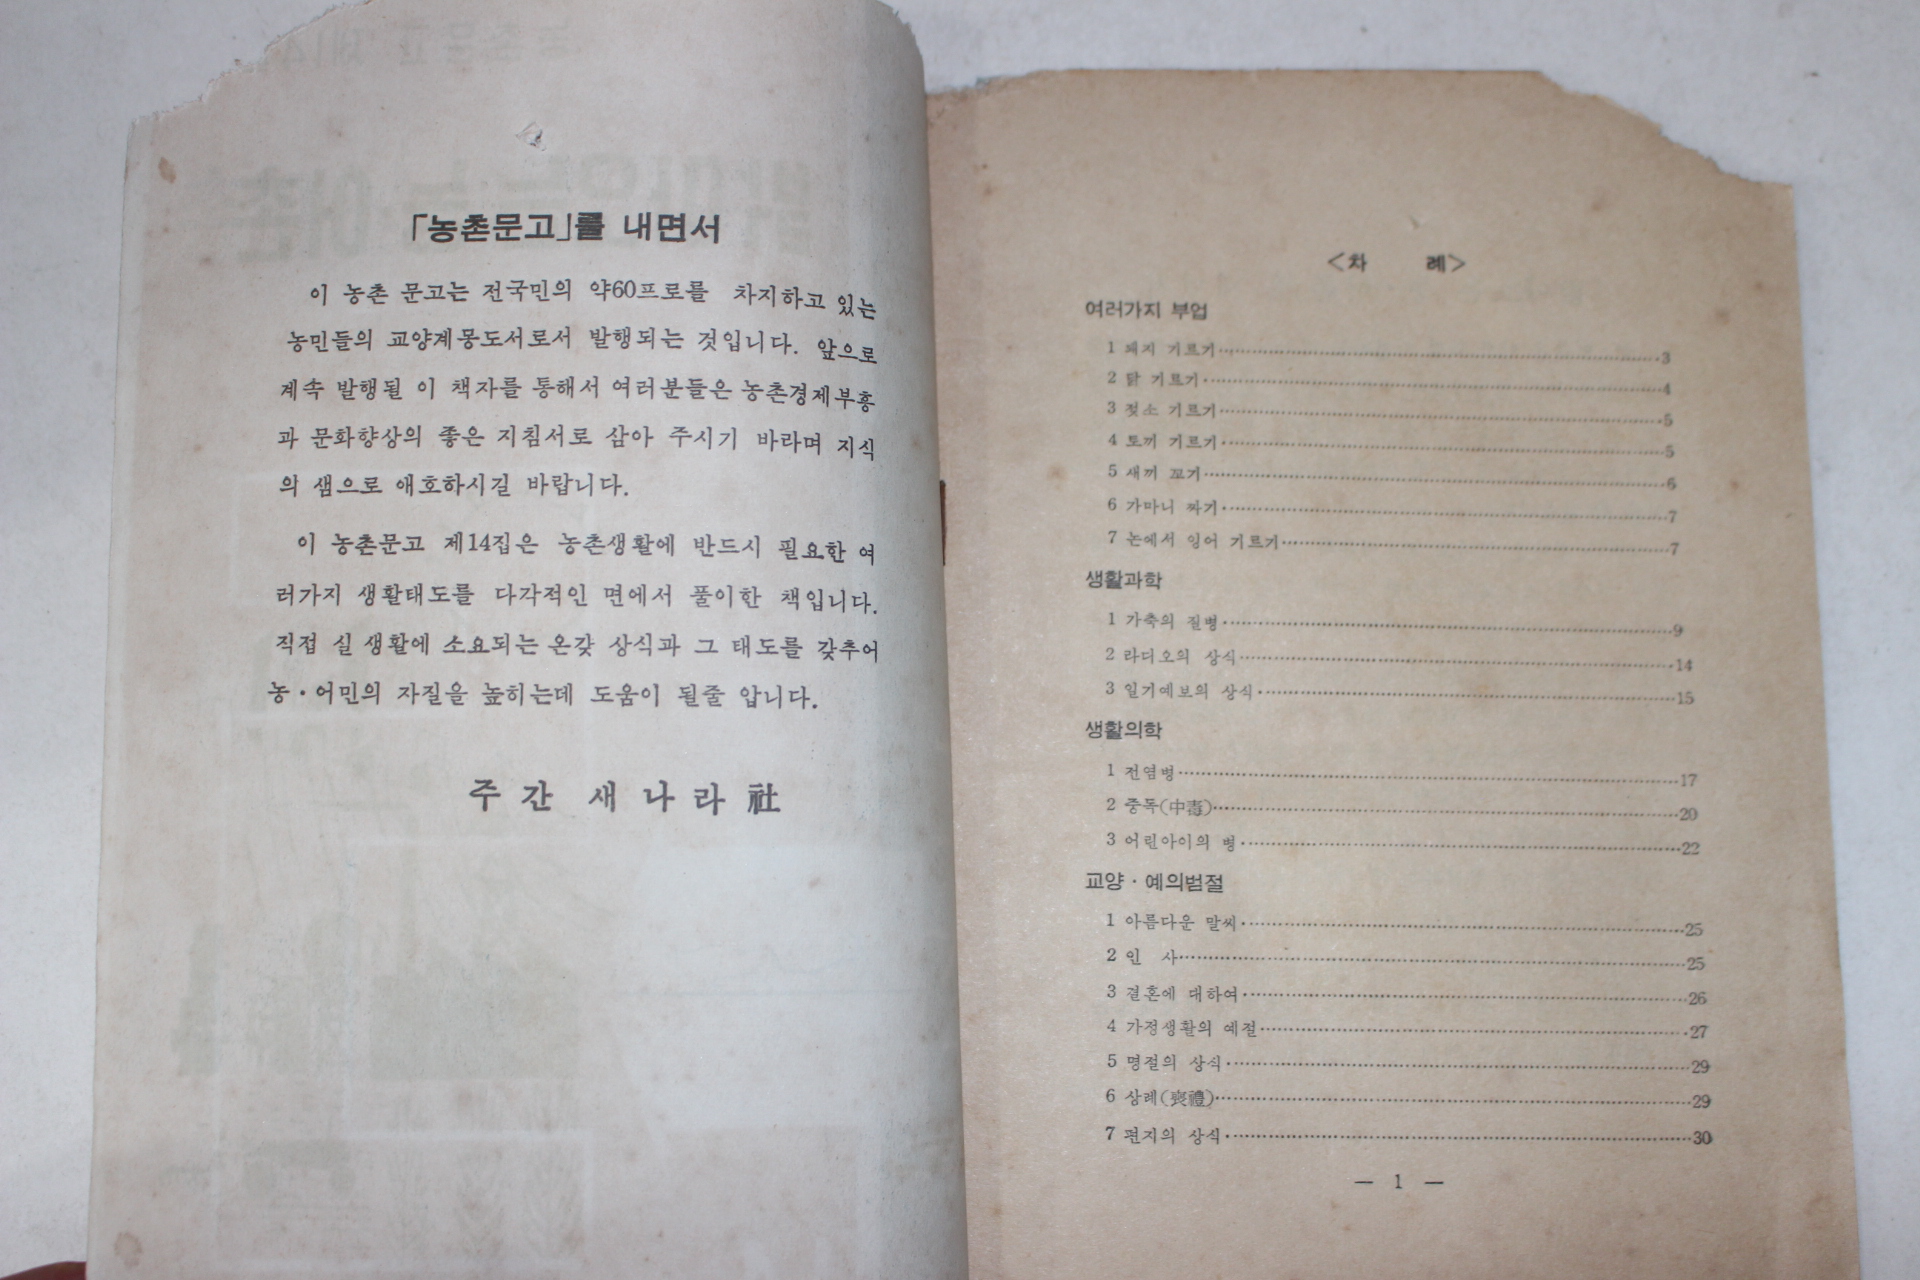 「농촌문고」를 내면서
이 농촌 문고는 전국민의 약60프로를 차지하고 있는
농민들의 교양계몽도서로서 발행되는 것입니다. 앞으로
계속 발행될 이 책자를 통해서 여러분들은 농촌경제부흥
과 문화향상의 좋은 지침서로 삼아 주시기 바라며 지식
의 샘으로 애호하시길 바랍니다.
이 농촌문고 제14집은 농촌생활에 반드시 필요한 여
러가지 생활태도를 다각적인 면에서 풀이한 책입니다.
직접 실 생활에 소요되는 온갖 상식과 그 태도를 갖추어
농·어민의 자질을 높히는데 도움이 될줄 압니다.
주간 새나라社
<차 례>
여러가지 부업
1 돼지 기르기 3
2 닭 기르기 4
3 젖소 기르기 5
4 토끼 기르기 5
5 새끼 꼬기 6
6 가마니 짜기 7
7 논에서 잉어 기르기 7
생활과학
1 가축의 질병 9
2 라디오의 상식 14
3 일기예보의 상식 15
생활의학
1 전염병 17
2 중독(中毒) 20
3 어린아이의 병 22
교양·예의범절
1 아름다운 말씨 25
2 인 사 25
3 결혼에 대하여 26
4 가정생활의 예절 27
5 명절의 상식 29
6 상례(喪禮) 29
7 편지의 상식 30
— 1 —